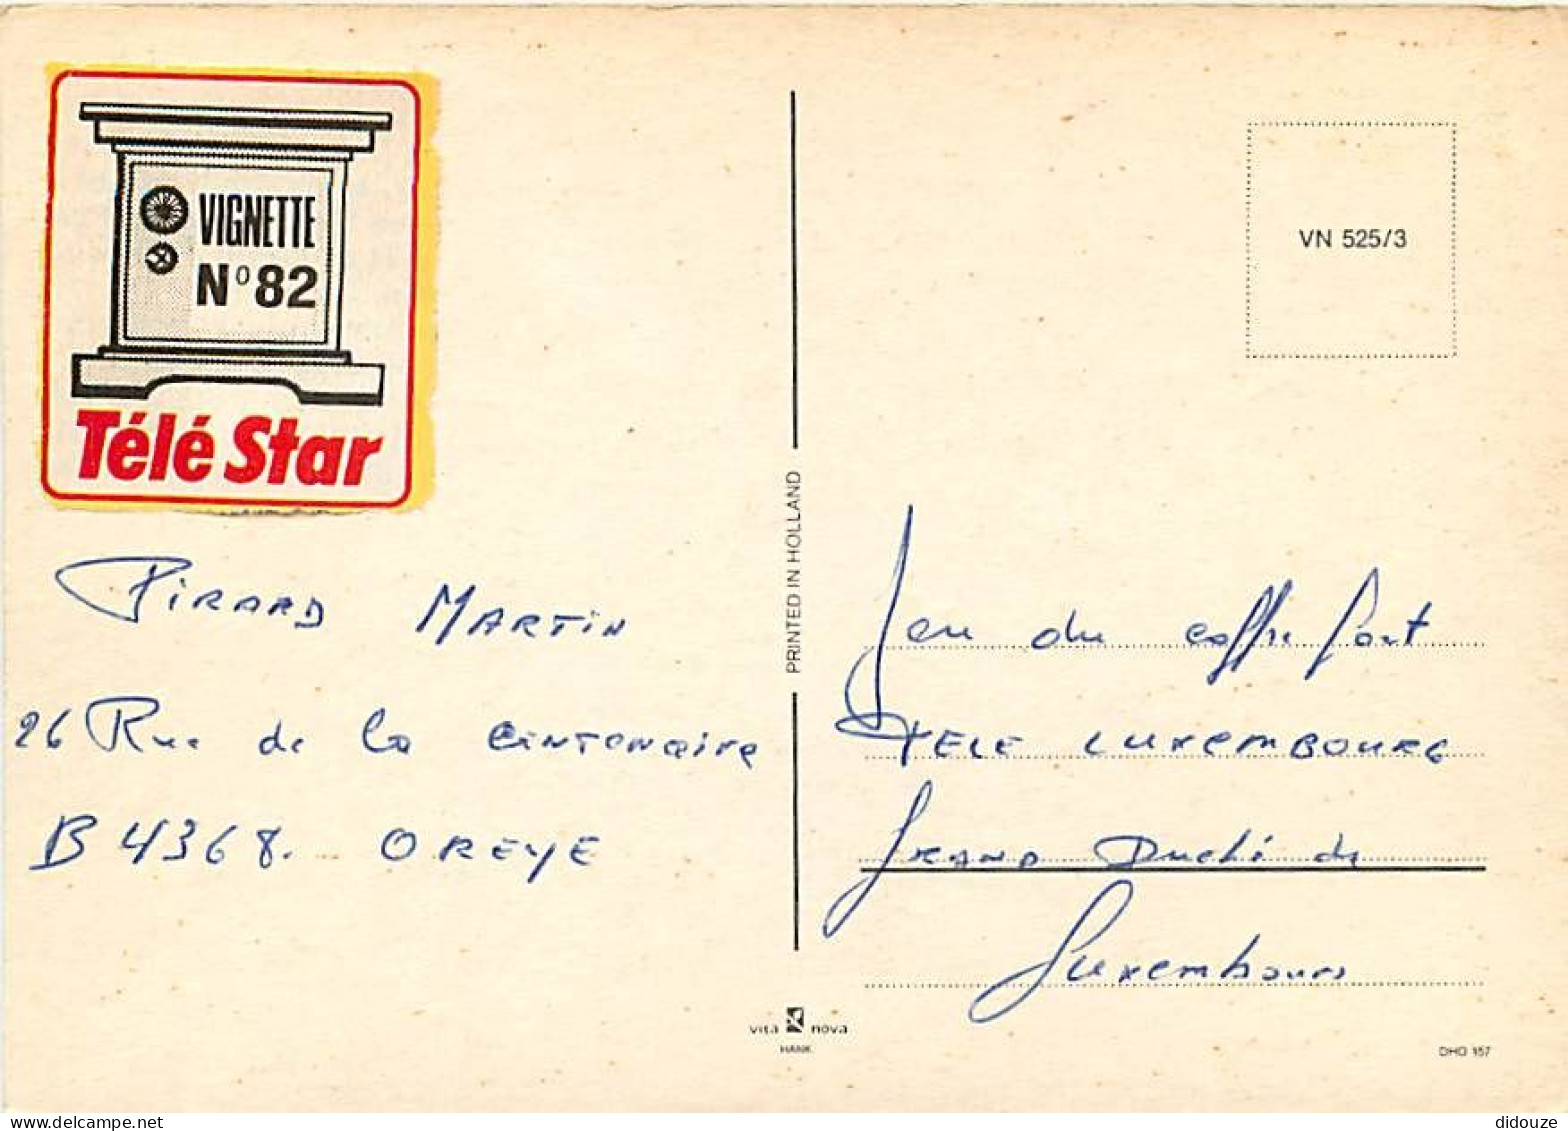 VIGNETTE
N° 82
Télé Star
PIRARD MARTIN
26 Rue de la CENTENAIRE
B 4368. OREYE
PRINTED IN HOLLAND
VN 525/3
Jeu du coffre fort
TELE LUXEMBOURG
GRAND Duché de
Luxembourg
vita nova
HANK
DHD 157
didouze